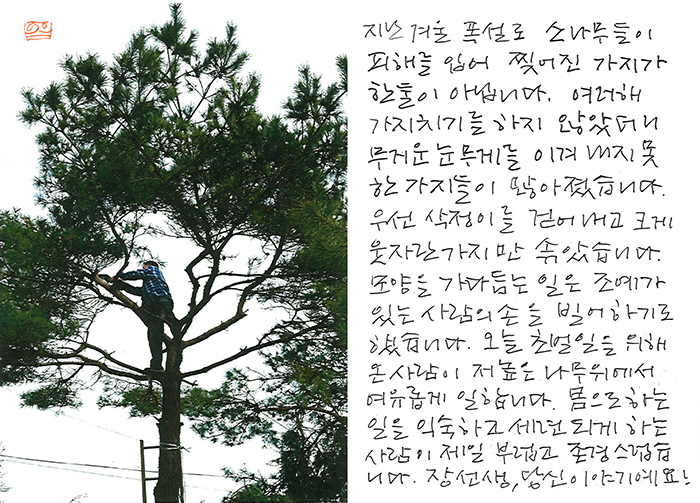 지난 겨울 폭설로 소나무들이
피해를 입어 찢어진 가지가
한둘이 아닙니다. 여러해
가지치기를 하지 않았더니
무거운 눈무게를 이겨내지 못
한 가지들이 많아졌습니다.
우선 삭정이를 걷어내고 크게
웃자란 가지만 솎았습니다.
모양을 가다듬는 일은 조예가
있는 사람의 손을 빌어하기로
했습니다. 오늘 초벌일을 위해
온 사람이 저 높은 나무위에서
여유롭게 일합니다. 몸으로 하는
일을 익숙하고 세련되게 하는
사람이 제일 부럽고 존경스럽습
니다. 장선생, 당신이야기예요!